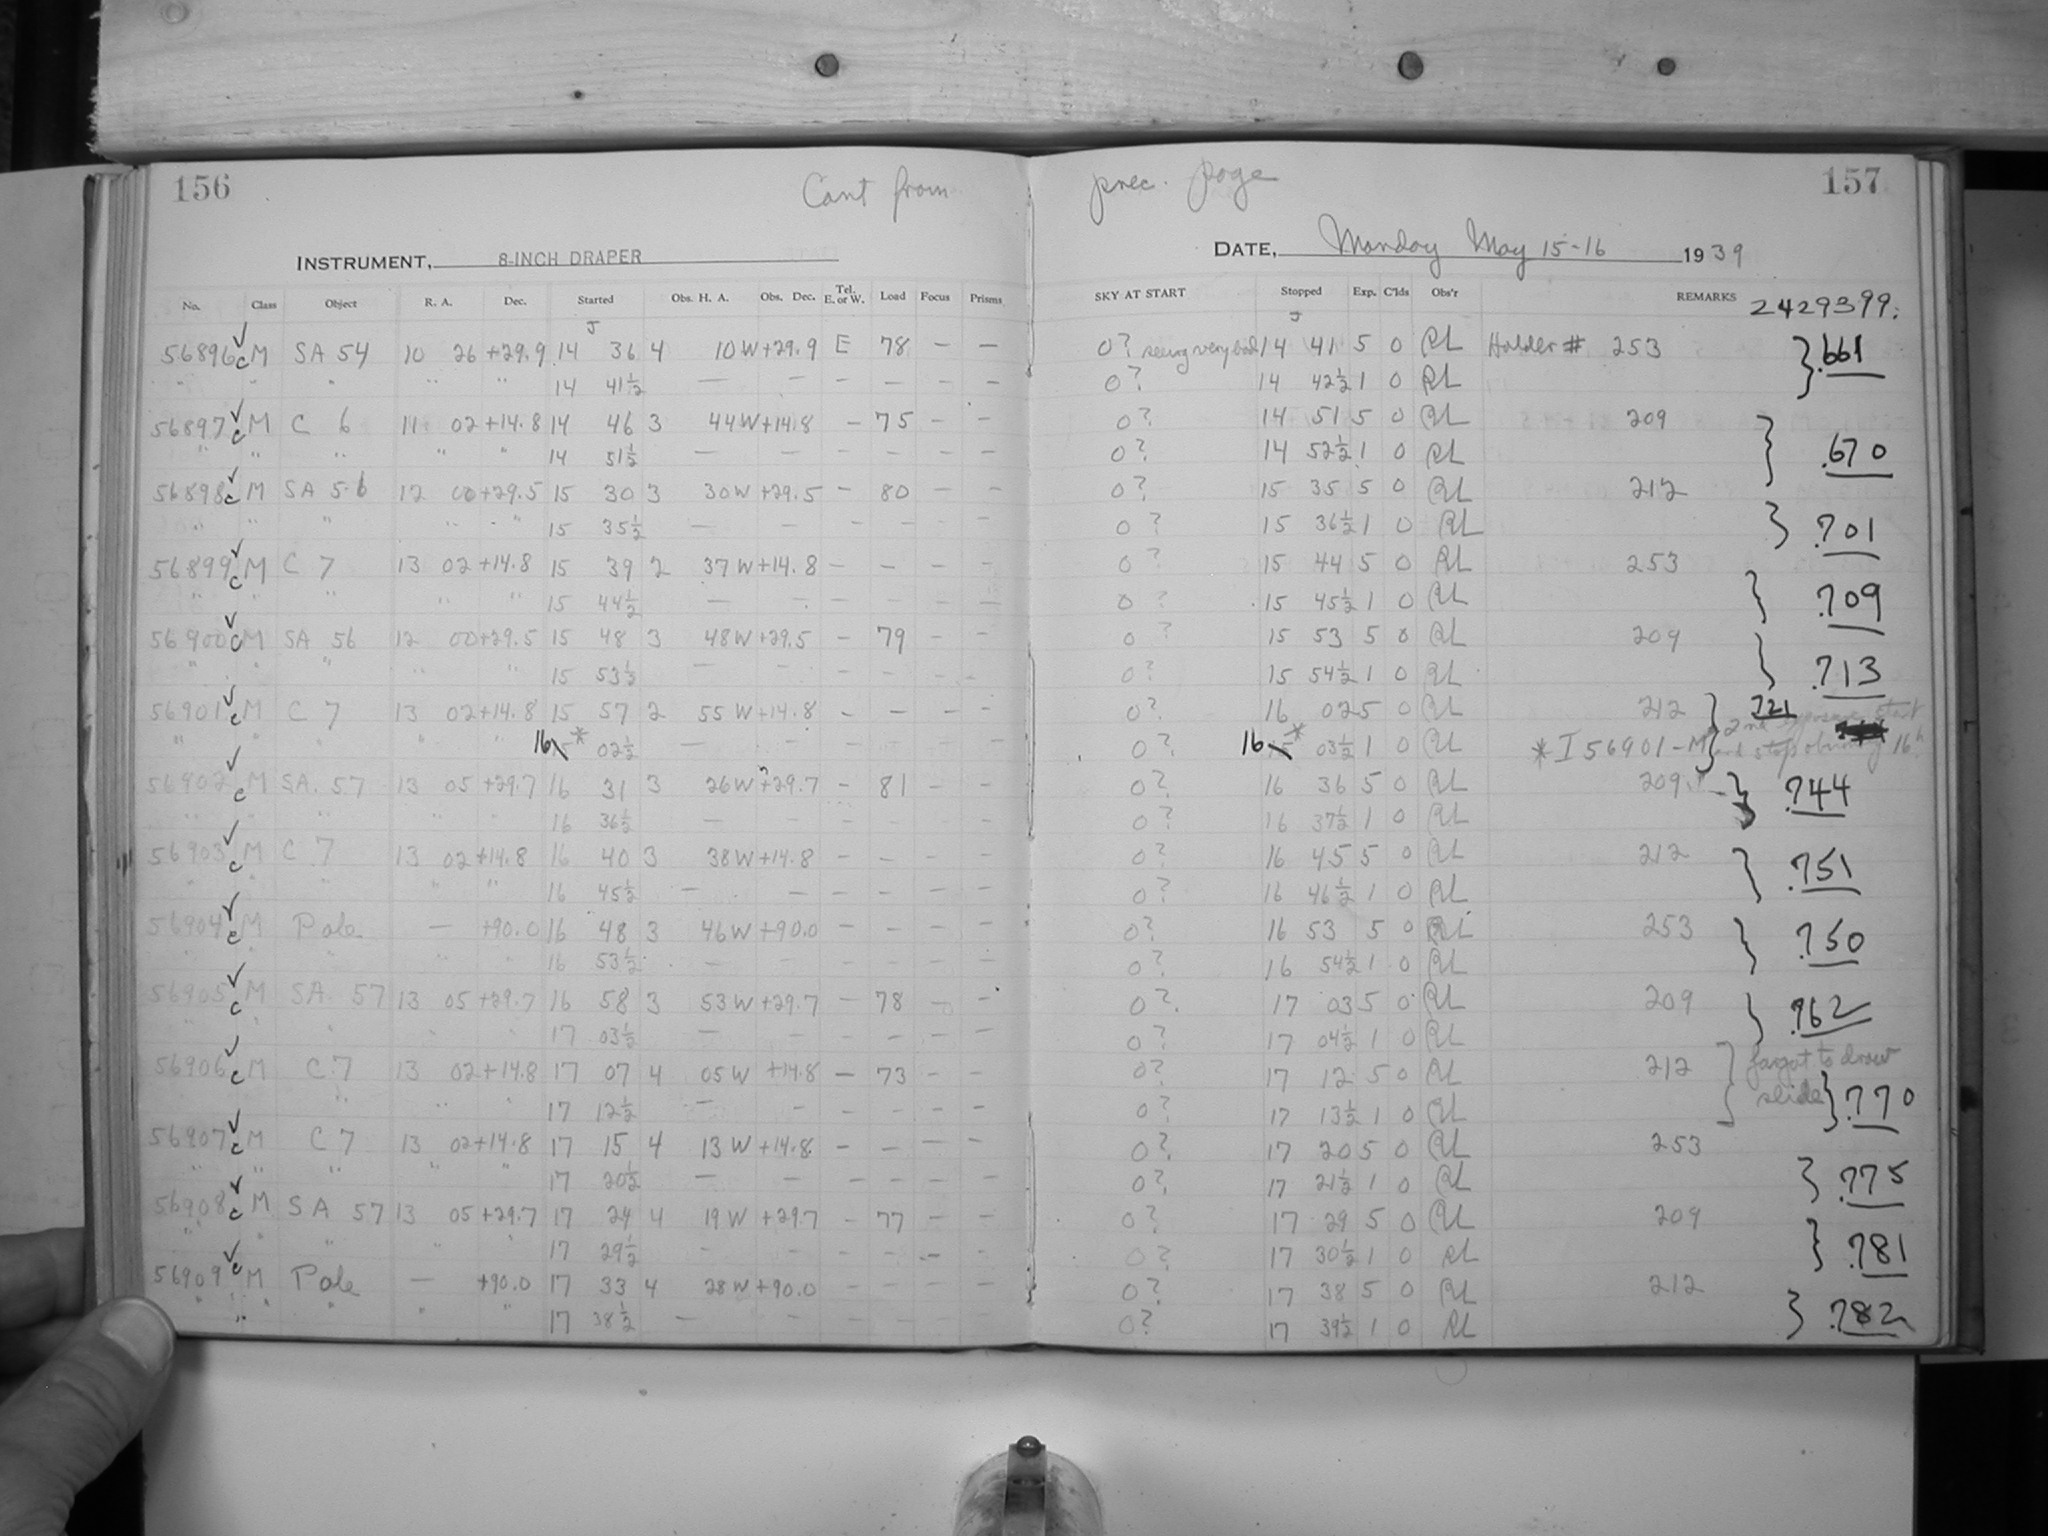 156 Cont from prec. page 157
INSTRUMENT, 8-INCH DRAPER DATE, Monday May 15-16 1939
No. Class Object R. A. Dec. Started Obs. H. A. Obs. Dec. Tel. E. or W. Load Focus Prisms SKY AT START Stopped Exp. C'lds Obs'r REMARKS 2429399.
J J
56896 ✓ c M SA 54 10 26 +29.9 14 36 4 10 W +29.9 E 78 — — 0? seeing very bad 14 41 5 0 RL Holder # 253 } .661
" " " " " 14 41½ — — — — — — 0? 14 42½ 1 0 RL
56897 ✓ c M C 6 11 02 +14.8 14 46 3 44 W +14.8 — 75 — — 0? 14 51 5 0 RL 209 } .670
" " " " " 14 51½ — — — — — — 0? 14 52½ 1 0 RL
56898 ✓ c M SA 56 12 00 +29.5 15 30 3 30 W +29.5 — 80 — — 0? 15 35 5 0 RL 212 } .701
" " " " " 15 35½ — — — — — — 0? 15 36½ 1 0 RL
56899 ✓ c M C 7 13 02 +14.8 15 39 2 37 W +14.8 — — — — 0? 15 44 5 0 RL 253 } .709
" " " " " 15 44½ — — — — — — 0? 15 45½ 1 0 RL
56900 ✓ c M SA 56 12 00 +29.5 15 48 3 48 W +29.5 — 79 — — 0? 15 53 5 0 RL 209 } .713
" " " " " 15 53½ — — — — — — 0? 15 54½ 1 0 RL
56901 ✓ c M C 7 13 02 +14.8 15 57 2 55 W +14.8 — — — — 0? 16 02 5 0 RL 212 } .721 2nd exposure start
" " " " " 16 * 02½ — — — — — — 0? 16 * 03½ 1 0 RL * I 56901-M and stop 16h
56902 ✓ c M SA. 57 13 05 +29.7 16 31 3 26 W ? +29.7 — 81 — — 0? 16 36 5 0 RL 209 } .744
" " " " " 16 36½ — — — — — — 0? 16 37½ 1 0 RL
56903 ✓ c M C 7 13 02 +14.8 16 40 3 38 W +14.8 — — — — 0? 16 45 5 0 RL 212 } .751
" " " " " 16 45½ — — — — — — 0? 16 46½ 1 0 RL
56904 ✓ c M Pole — +90.0 16 48 3 46 W +90.0 — — — — 0? 16 53 5 0 RL 253 } .750
" " " " " 16 53½ — — — — — — 0? 16 54½ 1 0 RL
56905 ✓ c M SA 57 13 05 +29.7 16 58 3 53 W +29.7 — 78 — — 0? 17 03 5 0 RL 209 } .762
" " " " " 17 03½ — — — — — — 0? 17 04½ 1 0 RL
56906 ✓ c M C 7 13 02 +14.8 17 07 4 05 W +14.8 — 73 — — 0? 17 12 5 0 RL 212 } forgot to draw
" " " " " 17 12½ — — — — — — 0? 17 13½ 1 0 RL slide } .770
56907 ✓ c M C 7 13 02 +14.8 17 15 4 13 W +14.8 — — — — 0? 17 20 5 0 RL 253 } .775
" " " " " 17 20½ — — — — — — 0? 17 21½ 1 0 RL
56908 ✓ c M SA 57 13 05 +29.7 17 24 4 19 W +29.7 — 77 — — 0? 17 29 5 0 RL 209 } .781
" " " " " 17 29½ — — — — — — 0? 17 30½ 1 0 RL
56909 ✓ c M Pole — +90.0 17 33 4 28 W +90.0 — — — — 0? 17 38 5 0 RL 212 } .782
" " " " " 17 38½ — — — — — — 0? 17 39½ 1 0 RL